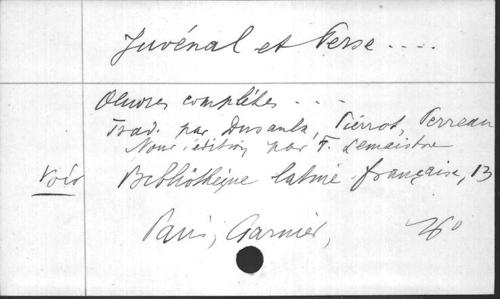 Juvénal et Perse ....
Oeuvres complètes ...
Trad. par Dusaulx, Pierrot, Perreau
Nouv. édition par F. Lemaistre
Voir Bibliothèque latine-française, 13
Paris, Garnier,